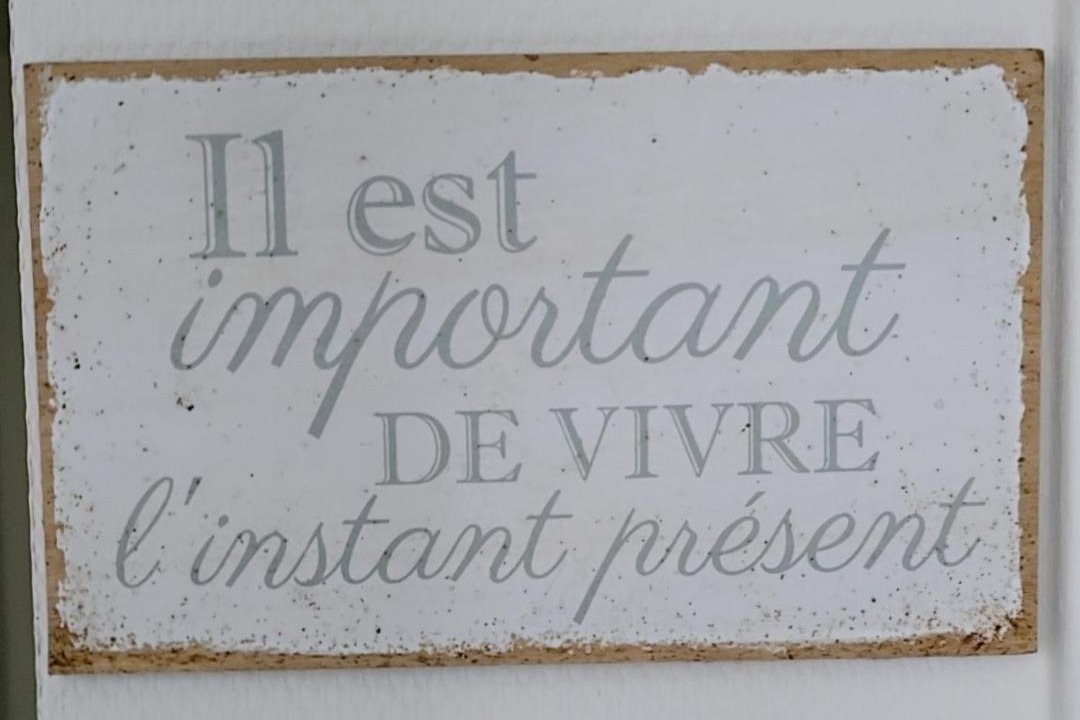 Il est
important
DE VIVRE
l'instant présent